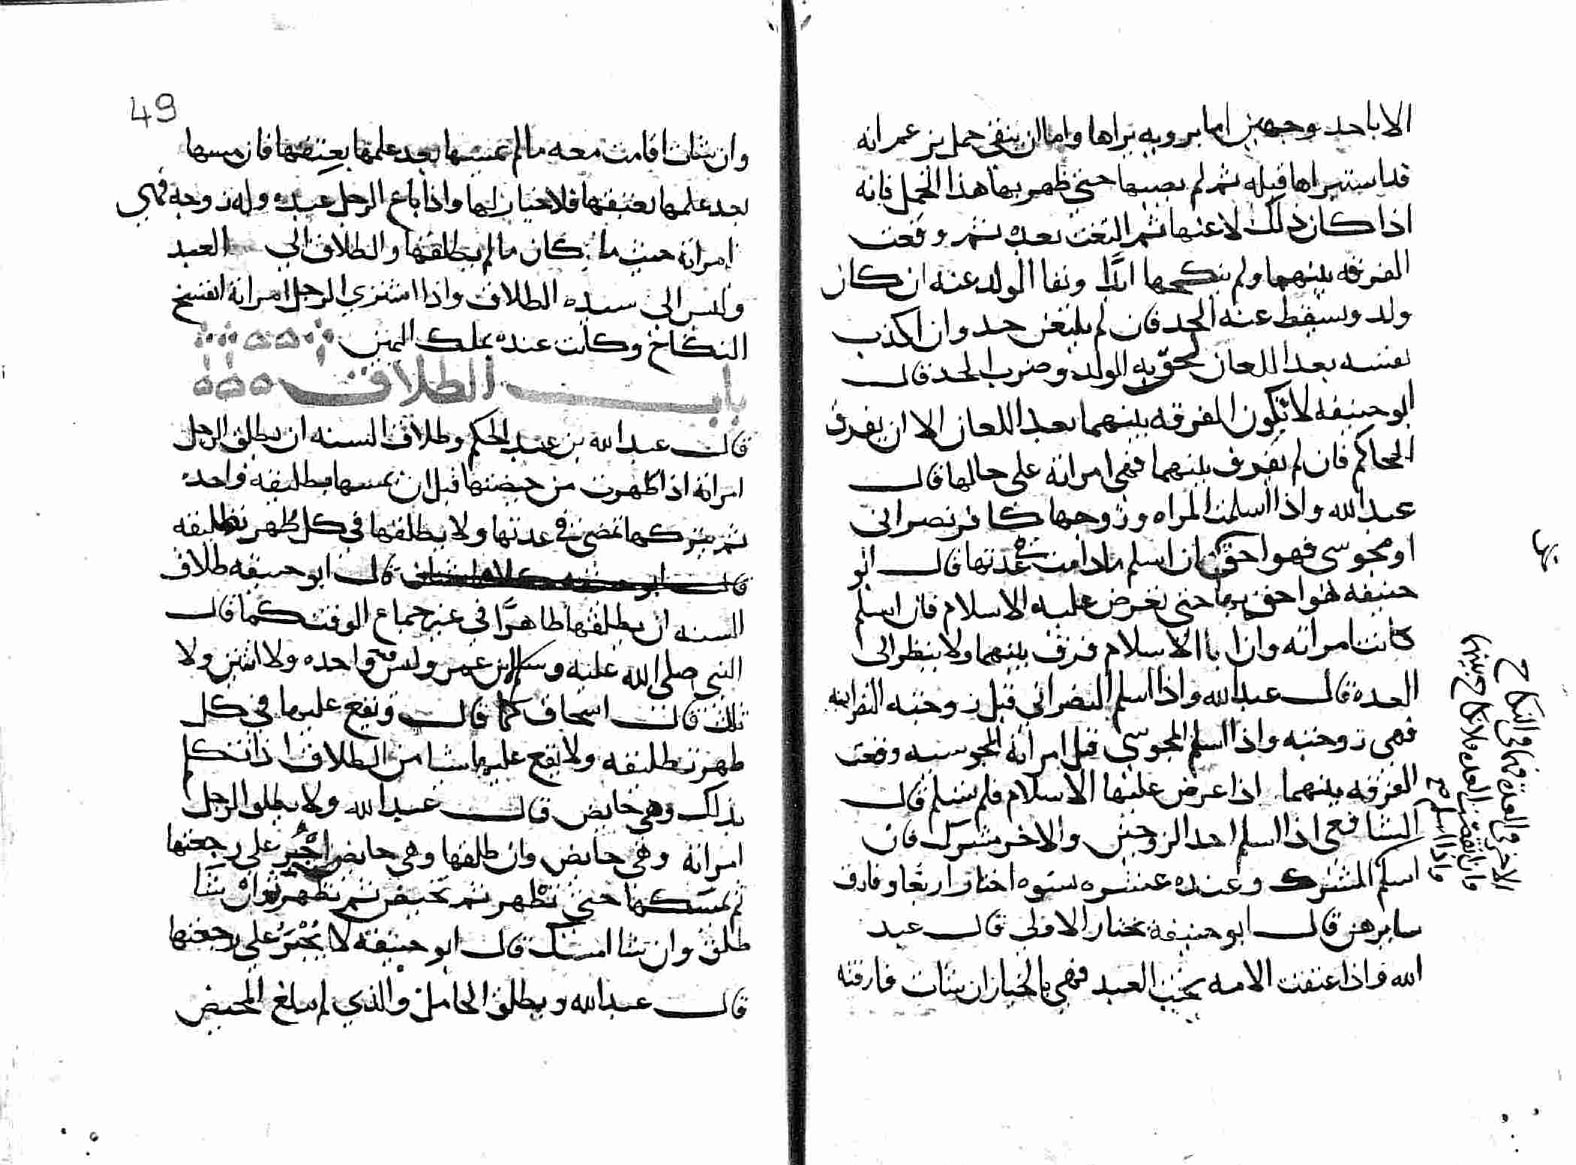 الا باحد وجهين اما برويه يراها واما ان ينفي حمل من عمرانه
قد استبراها قبله ثم لم يصيبها حتى ظهر بها هذا الحمل فانه
اذا كان ذلك لاعنها ثم التعنت بعده ثم وقعت
الفرقه بينهما ولم ينكحها ابدًا ونفا الولد عنه ان كان
ولد وسقط عنه الحد فان لم يلتعن حد وان اكذب
نفسه بعد اللعان لحق به الولد وضرب الحد قال
ابو حنيفه لا تكون الفرقه بينهما بعد اللعان الا ان يفرق
الحاكم فان لم يفرق بينهما فهي امراته على حالها قال
عبد الله واذا اسلمت المراه وزوجها كافر نصراني
او مجوسي فهو احق ان اسلم ما دامت في عدتها قال ابو
حنيفه هو احق بها حتى يعرض عليه الاسلام فان اسلم
كانت امراته وان ابا الاسلام فرق بينهما ولا ينظر الى
العده قال عبد الله واذا اسلم النصراني قبل زوجته النصرانيه
فهي زوجته واذا اسلم المجوسي قبل امراته المجوسيه وقعت
الفرقه بينهما اذا عرض عليها الاسلام فلم تسلم قال
الشافعي اذا اسلم احد الزوجين والاخر مشرك فان
اسلم المشرك وعنده عشره نسوه اختار اربعا وفارق
سايرهن قال ابو حنيفة يختار الاولى قال عبد
الله واذا عتقت الامه تحت العبد فهي بالخيار ان شات فارقته
الاخر في العدة فهما في النكاح
وان انقضت العده فلا نكاح بينهما
واذا اسلم ح
49
وان شات اقامت معه ما لم يمسها بعد علمها بعتقها فان مسها
بعد علمها بعتقها فلا خيار لها واذا باع الرجل عبده وله زوجه فهي
امراته حيث ما كان ما لم يطلقها والطلاق الى العبد
وليس الى سيده الطلاق واذا اشترى الرجل امراته انفسخ
النكاح وكانت عنده بملك اليمين
باب الطلاق
قال عبد الله بن عبد الحكم وطلاق السنه ان يطلق الرجل
امراته اذا طهرت من حيضتها قبل ان يمسها بطليقه واحده
ثم يتركها تمضي في عدتها ولا يطلقها في كل طهر تطليقه
قال ابو حنيفه طلاق
السنه ان يطلقها طاهرًا في غير جماع الوقت كما قال
النبي صلى الله عليه وسلم لابن عمر وليس في واحده ولا اثنين ولا
ثلث قال اسحاق كما قال وتقع عليها في كل
طهر تطليقه ولا يقع عليها شيا من الطلاق اذا تكلم
بذلك وهي حايض قال عبد الله ولا يطلق الرجل
امراته وهي حايض وان طلقها وهي حايض اجبر على رجعتها
ثم يمسكها حتى تطهر ثم تحيض ثم تطهر ثم ان شا
طلق وان شا امسك قال ابو حنيفه لا يُجْبَرُ على رجعتها
قال عبد الله ويطلق الحامل والذي لم تبلغ المحيض